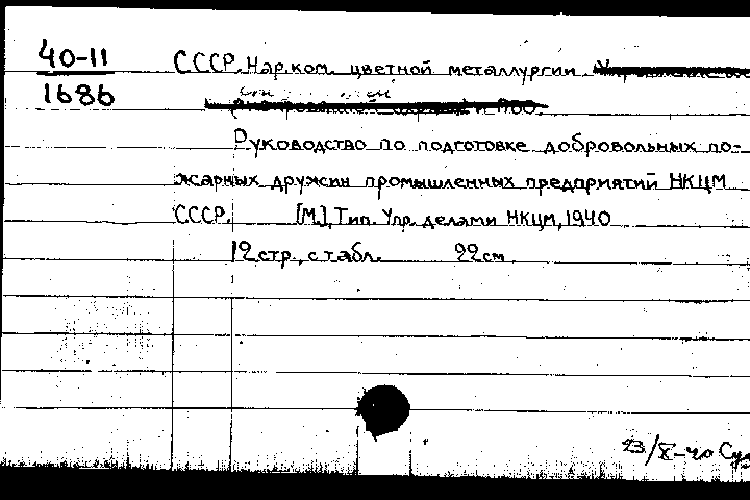 40-11
1686
СССР. Нар. ком. цветной металлургии.
и ПВО.
Руководство по подготовке добровольных по-
жарных дружин промышленных предприятий НКЦМ
СССР. [М.], Тип. Упр. делами НКЦМ, 1940
12 стр., с табл. 22 см.
23/X-40